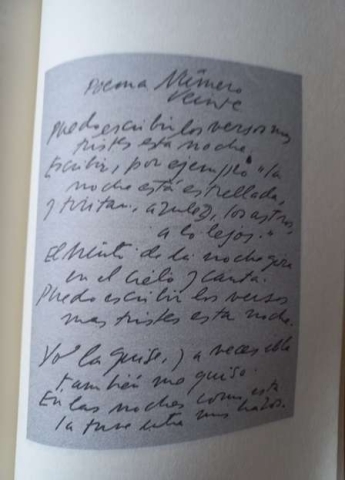 Poema Número
Veinte
Puedo escribir los versos mas
tristes esta noche.
Escribir, por ejemplo "la
noche está estrellada,
y tiritan, azules, los astros,
a lo lejos."
El viento de la noche gira
en el cielo y canta.
Puedo escribir los versos
mas tristes esta noche.
Yo la quise, y a veces ella
también me quiso.
En las noches como esta
la tuve entre mis brazos.